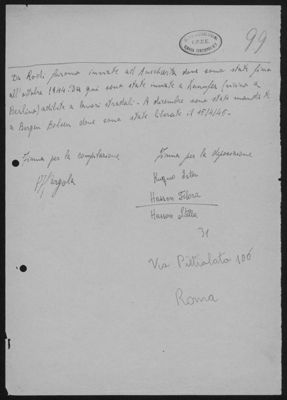 99
Da Rodi furono inviate ad Auschwitz dove sono state fino
all'ottobre 1944. Da qui sono state inviate a (vicino a
Berlino) adibite a lavori stradali. A dicembre sono state mandate
a Bergen Belsen dove sono state liberate il 15/4/45.
Firma per la compilazione
Firma per la deposizione
Hasson
Hasson Stella
Via Pietralata 106
Roma